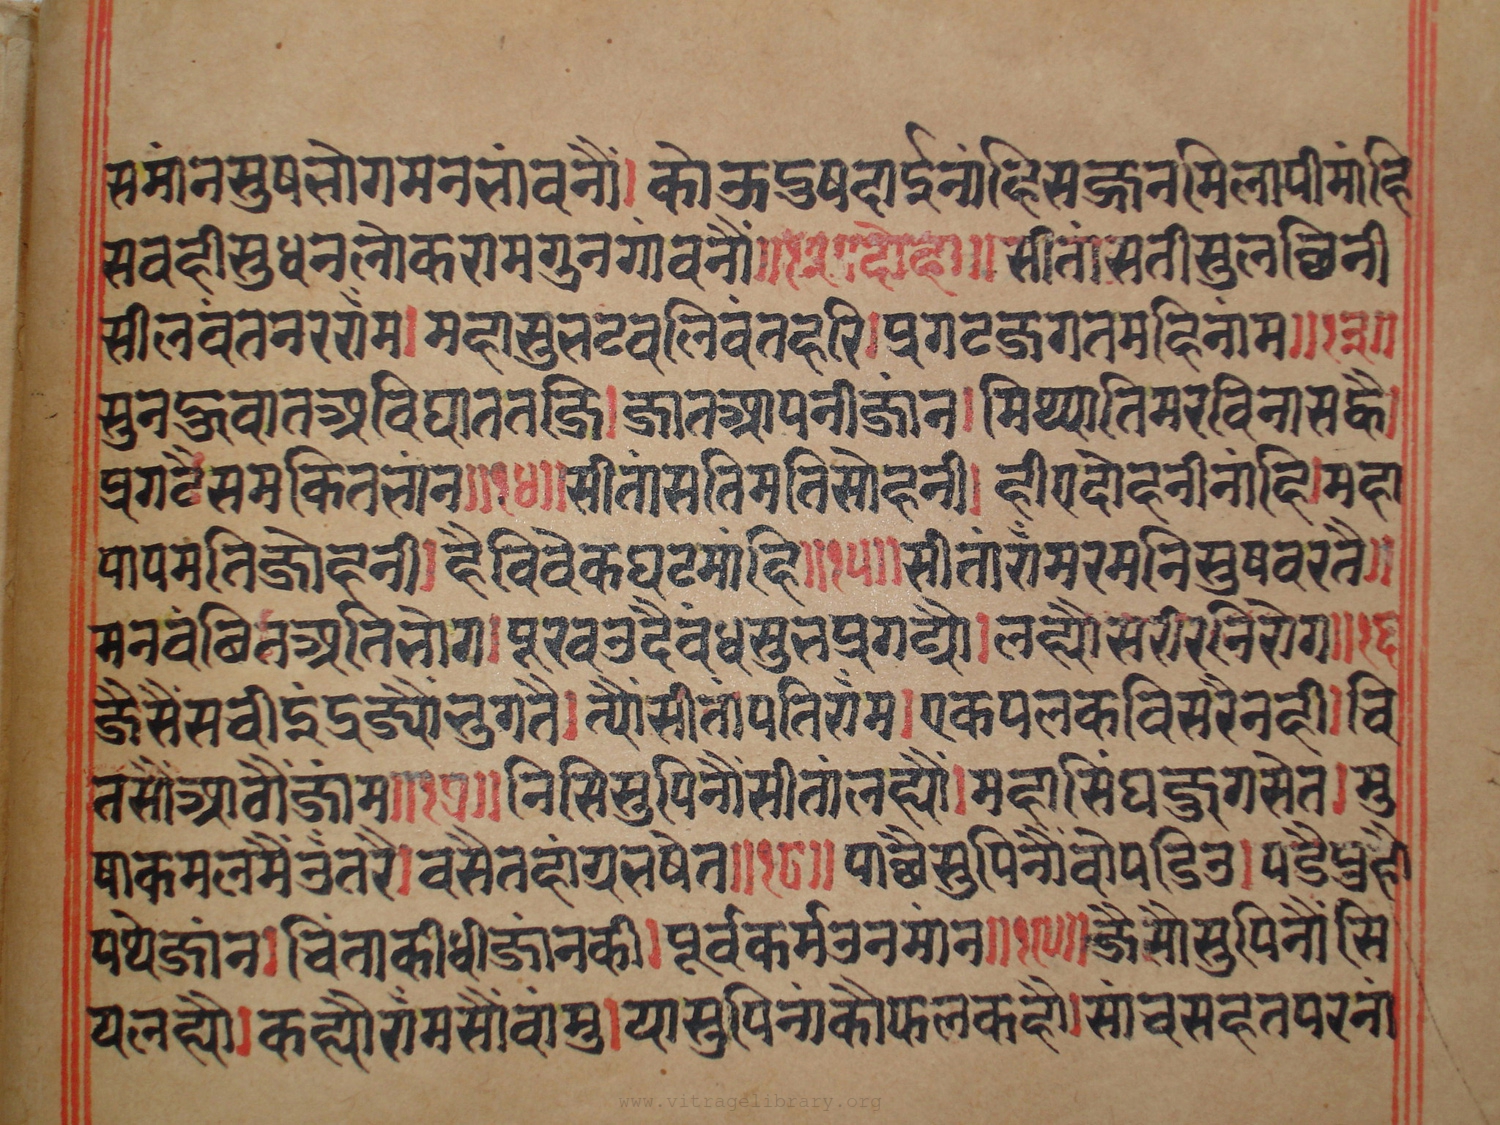 समांनसुषलोगमनलांवनौं। कोऊदुषदाईनांहिसज्जनमिलापीमांहि
सवहीसुधनलोकरामगुनगांवनौं॥१२॥दोहा॥ सीतांसतीसुलच्छिनी
सीलवंतनररांम। महासुभटवलिवंतहरि।प्रगटजगतमहिनांम॥१३॥
सुनहुवातअविघाततजि।जातआपनीजांन। मिथ्यातिमरविनासकै।
प्रगटैसमकितभांन॥१४॥सीतांसतिमतिसोहनी। हीएदोहनीनांहि।महा
पापमतिजोहनी।हैविवेकघटमांहि॥१५॥सीतांरांमरमनिसुषवरतै॥
मनवंछितअतिभोग।पूरवउदैवंधसुभप्रगट्यो।लह्यौसरीरनिरोग॥१६
जैसैंसचीइंद्रज्यौंभुगतै।त्यौंसीतांपतिरांम।एकपलकविसरैनही।चि
तसौंआवौंजांम॥१७॥निसिसुपिनौंसीतांलह्यौं।महासिंघजुगसेत।मु
षाकमलमैंउंतरै।वसैतहांग्रभषेत॥१८॥ पाछैसुपिनौंवोपडिउ।पडैपुहौ
पथेजांन।चिंताकीधीजांनकी।पूर्वकर्मउनमांन॥१९॥जैसौसुपिनौंसि
यलह्यौ।कह्यौरांमसौंवांमु।यासुपिनांकौफलकहौ।सांवसहतपरनां